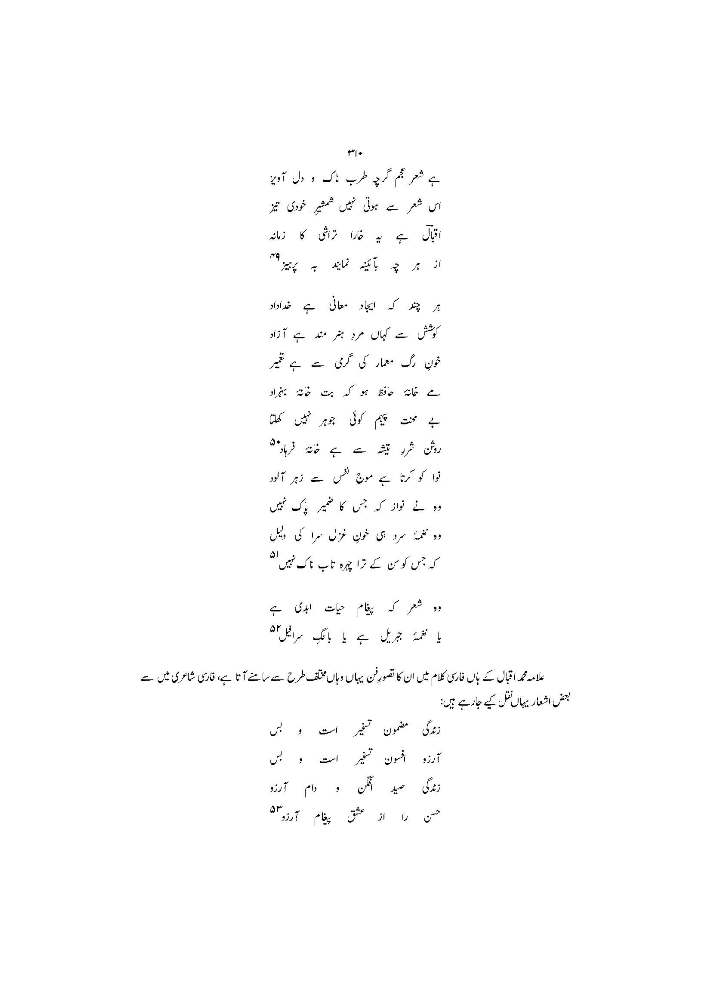 ۳۱۰
ہے شعر عجم گرچہ طرب ناک و دل آویز
اس شعر سے ہوتی نہیں شمشیرِ خودی تیز
اقبالؔ یہ ہے خارا تراشی کا زمانہ
از ہر چہ بآئینہ نمایند بہ پرہیز۴۹
ہر چند کہ ایجاد معانی ہے خداداد
کوشش سے کہاں مردِ ہنر مند ہے آزاد
خونِ رگِ معمار کی گرمی سے ہے تعمیر
مے خانۂ حافظ ہو کہ بت خانۂ بہزاد
بے محنت پیہم کوئی جوہر نہیں کھلتا
روشن شررِ تیشہ سے ہے خانۂ فرہاد۵۰
نوا کو کرتا ہے موجِ نفس سے زہر آلود
وہ نے نواز کہ جس کا ضمیر پاک نہیں
وہ نغمۂ سرد ہی خونِ غزل سرا کی دلیل
کہ جس کو سن کے ترا چہرہ تاب ناک نہیں۵۱
وہ شعر کہ پیغام حیات ابدی ہے
یا نغمۂ جبریل ہے یا بانگِ سرافیل۵۲
علامہ محمد اقبال کے ہاں فارسی کلام میں ان کا تصورِ فن یہاں وہاں مختلف طرح سے سامنے آتا ہے، فارسی شاعری میں سے
بعض اشعار یہاں نقل کیے جارہے ہیں:
زندگی مضمون تسخیر است و بس
آرزو افسون تسخیر است و بس
زندگی صید افگن و دام آرزو
حسن را از عشق پیغام آرزو۵۳